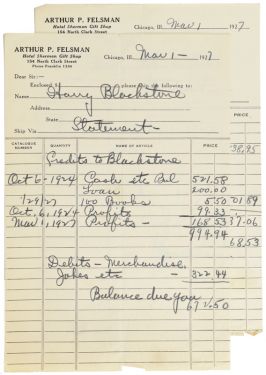 ARTHUR P. FELSMAN
Hotel Sherman Gift Shop
154 North Clark Street
Chicago, Ill. Mar 1 1927
ARTHUR P. FELSMAN
Hotel Sherman Gift Shop
154 North Clark Street
Phone Franklin
Chicago, Ill. Mar 1 - 1927
Dear Sir:-
Enclosed please ship the following to:
Name Harry Blackstone
Address
State
Ship Via Statement -
CATALOGUE NUMBER QUANTITY NAME OF ARTICLE PRICE
PRICE
Credits to Blackstone
38,95
Oct 6 - 1924 Cash etc Bal 521.58
Loan 200.00
1/29/27 100 Books 5.50
01.89
Oct, 6, 1924 Profits 99.33
Mar 1, 1927 Profits - 168.53
37.06
994.94
68,53
Debits - Merchandise
Jokes etc - 322.44
Balance due you
672.50